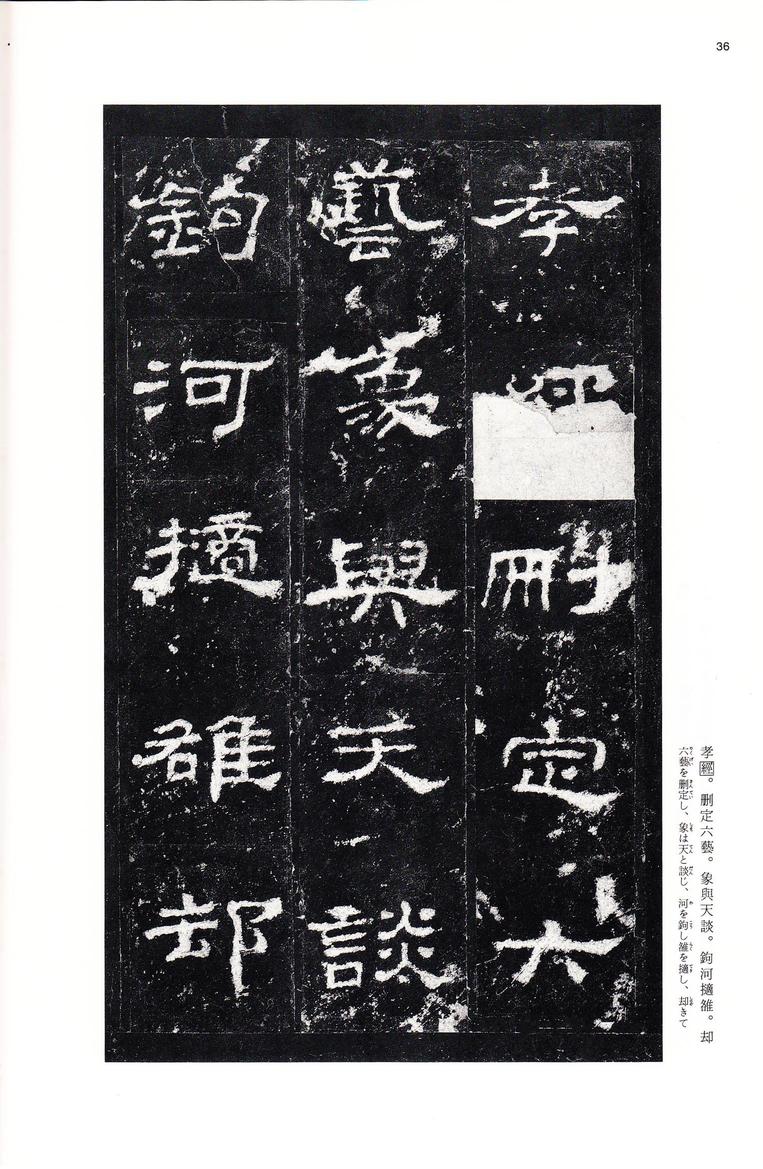 36
孝經刪定六
藝象與天談
鉤河擿雒却
孝經。刪定六藝。象與天談。鉤河擿雒。却
六藝を刪定し、象は天と談じ、河を鉤し雒を擿し、却きて